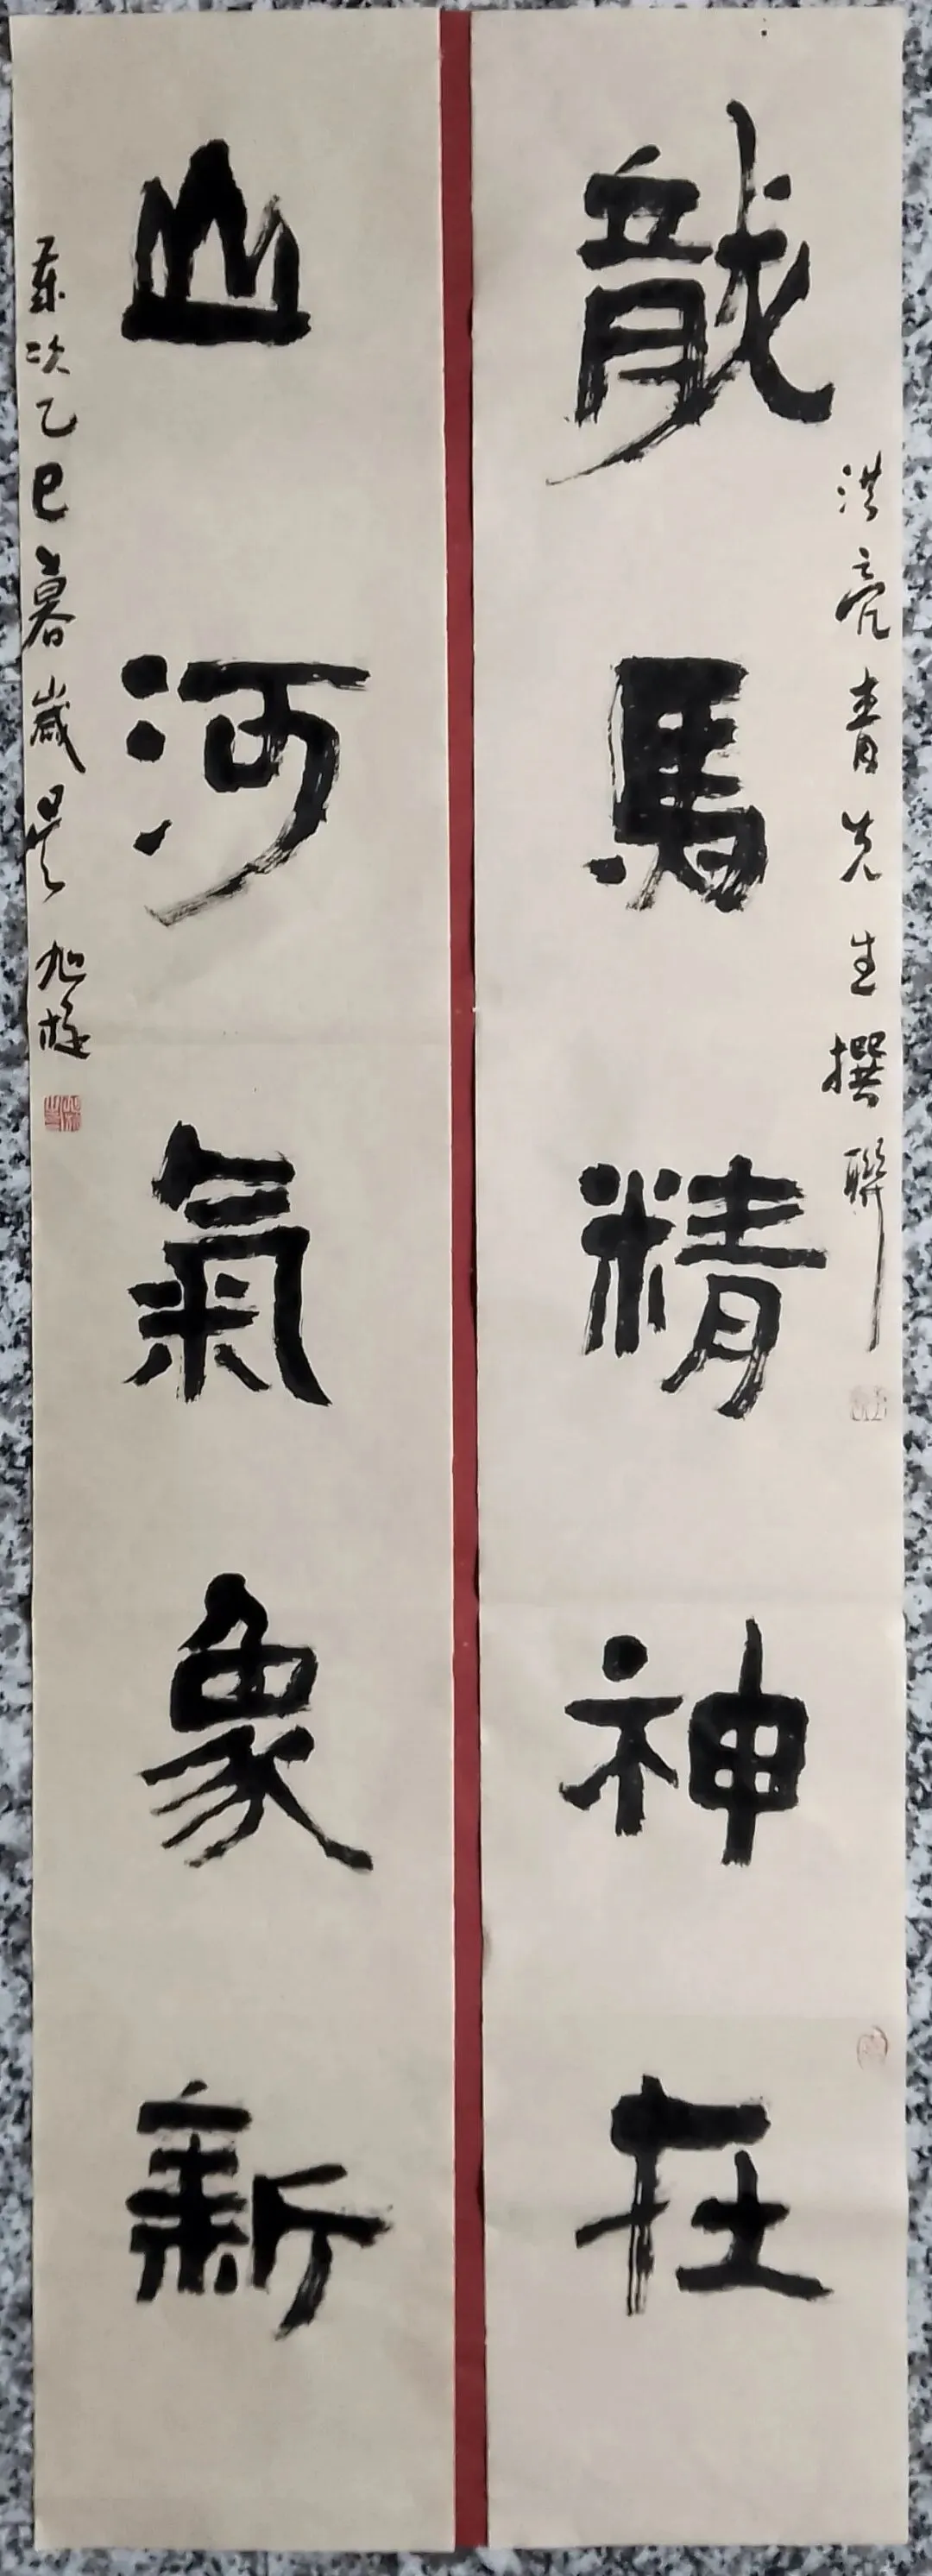 龍馬精神在
洪亮青先生撰聯
山河氣象新
歲次乙巳暮歲吳旭